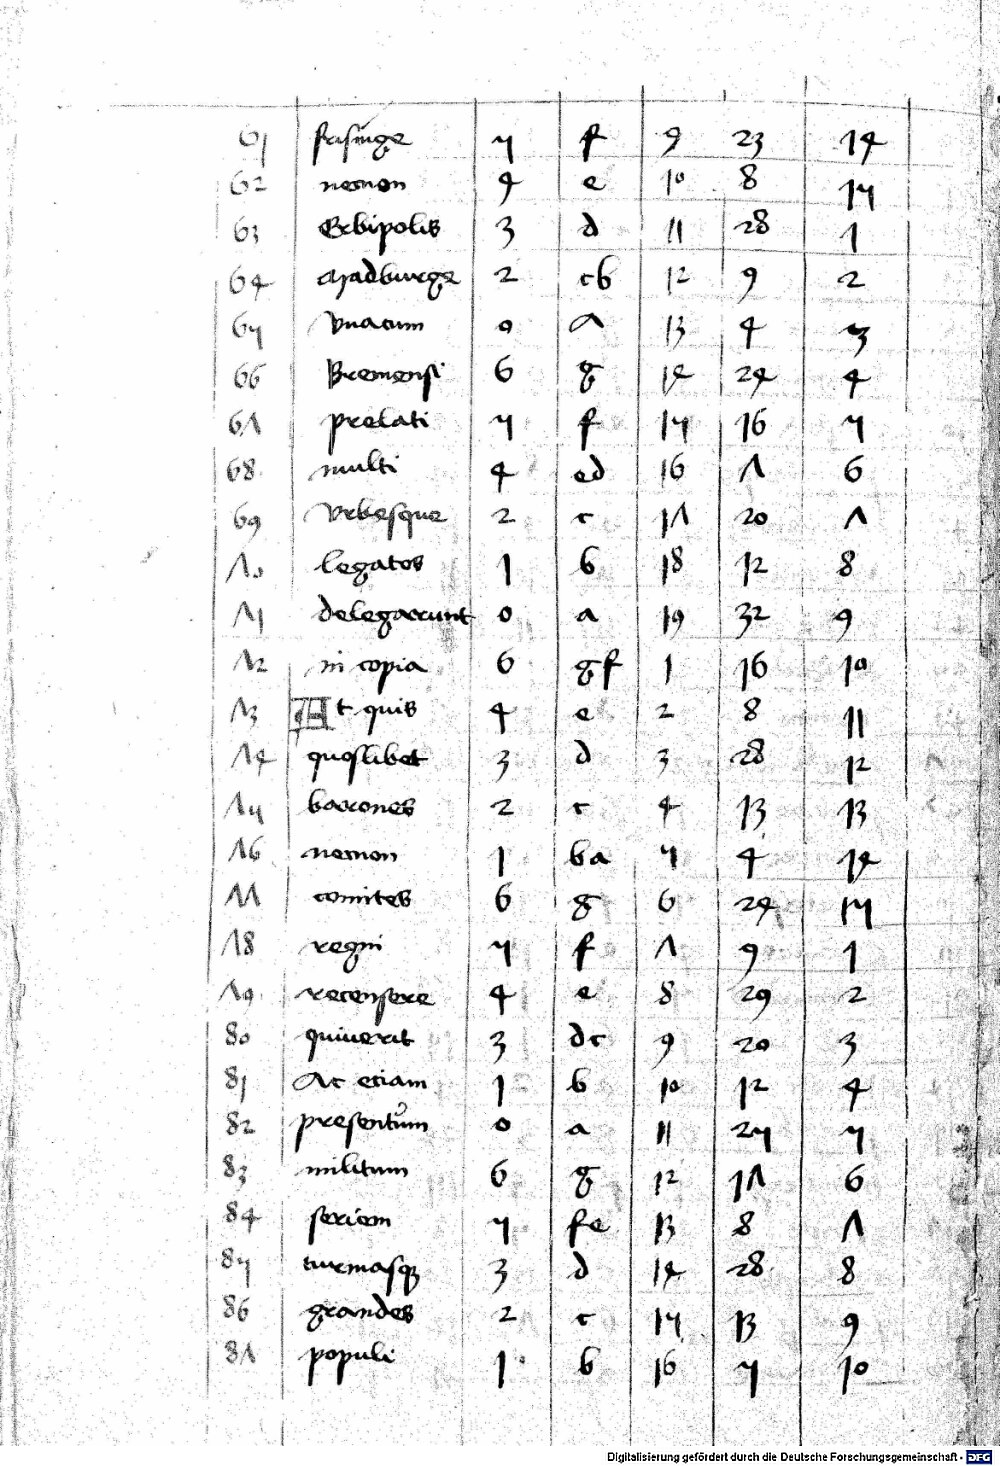 61 frisinge 5 f 9 23 14
62 necnon 4 e 10 8 15
63 Erbipolis 3 d 11 28 1
64 Madburge 2 cb 12 9 2
65 Vnacum 0 a 13 4 3
66 Bremensi 6 g 14 24 4
67 prelati 5 f 15 16 5
68 multi 4 ed 16 7 6
69 Vrbesque 2 c 17 20 7
70 legatos 1 b 18 12 8
71 delegarunt 0 a 19 32 9
72 in copia 6 gf 1 16 10
73 At quis 4 e 2 8 11
74 quoslibet 3 d 3 28 12
75 barones 2 c 4 13 13
76 necnon 1 ba 5 4 14
77 comites 6 g 6 24 15
78 regni 5 f 7 9 1
79 recensere 4 e 8 29 2
80 quiuerit 3 dc 9 20 3
81 Ac eciam 1 b 10 12 4
82 presentum 0 a 11 25 5
83 militum 6 g 12 17 6
84 seriem 5 fe 13 8 7
85 turmasqꝫ 3 d 14 28 8
86 grandes 2 c 15 13 9
87 populi 1 b 16 5 10
Digitalisierung gefördert durch die Deutsche Forschungsgemeinschaft - DFG